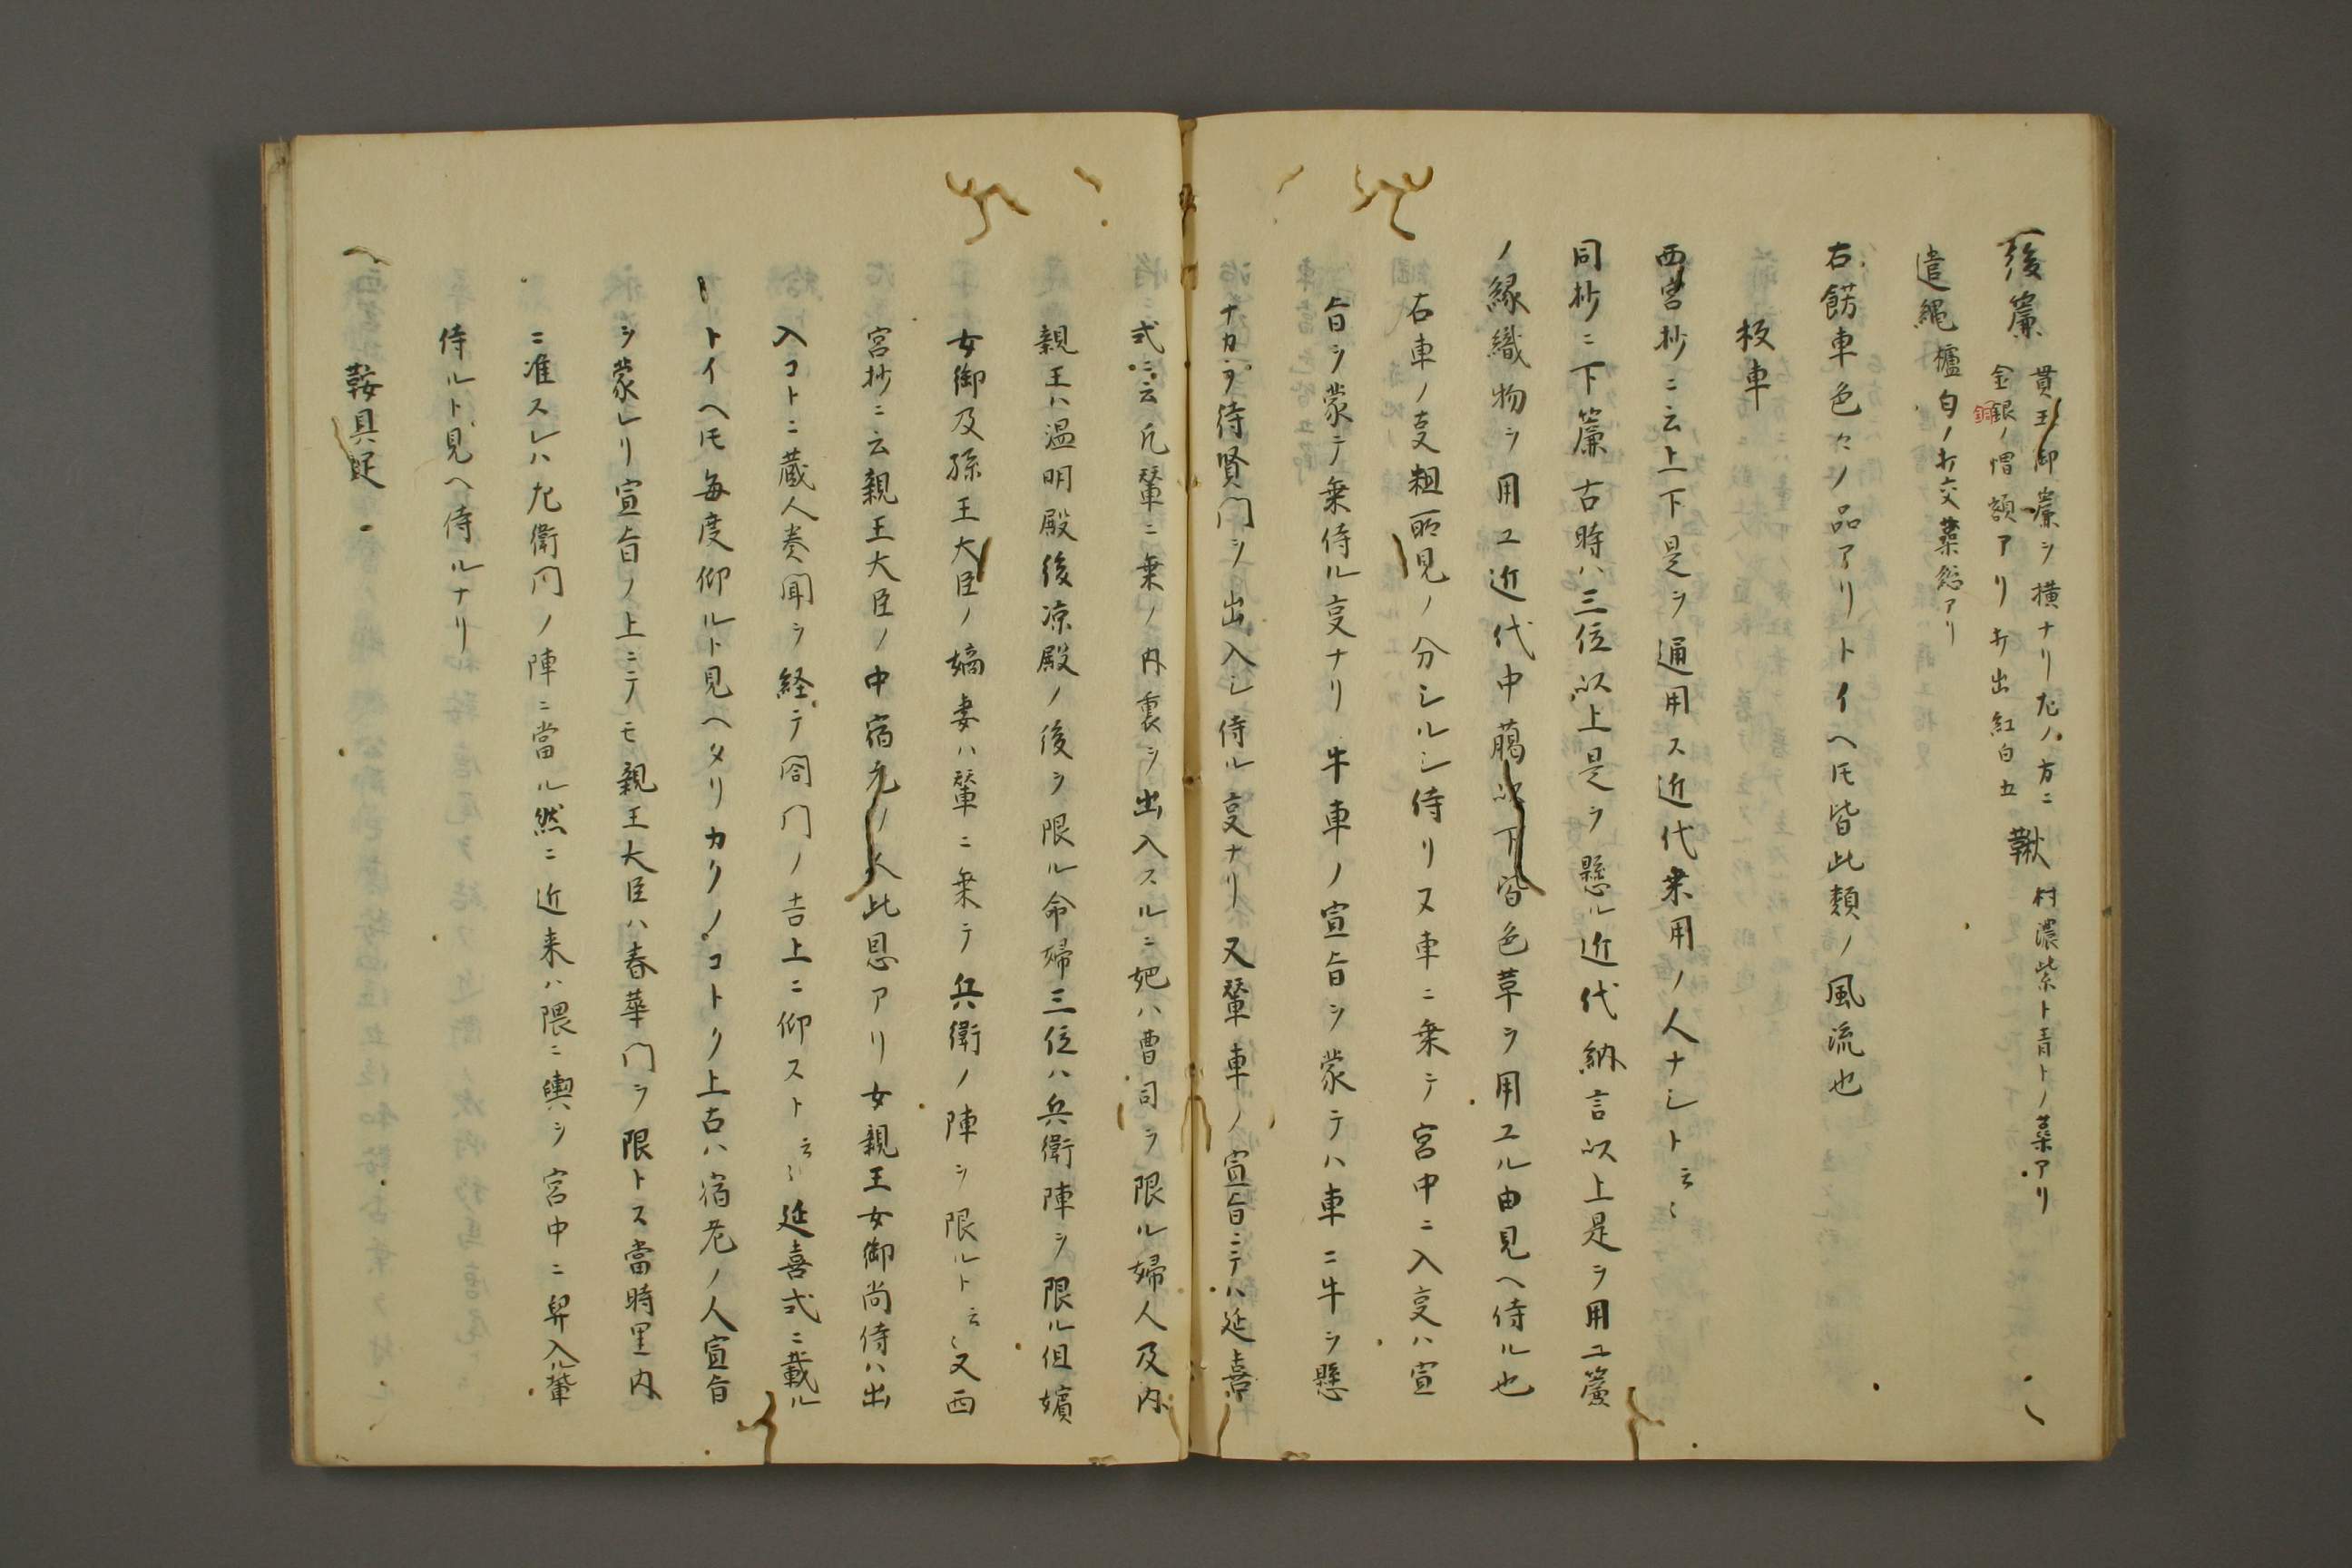 後簾 貫玉御簾ヲ横ナリ左ノ方ニ
金銀ノ帽額アリ打出紅白五
銅
鞦 村濃紫ト青トノ蘂アリ
遣繩 櫨白ノ打交蘂総アリ
右餝車色々ノ品アリトイヘ𪜈皆此類ノ風流也
板車
西宮抄ニ云上下是ヲ通用ス近代乗用ノ人ナシト云々
同抄ニ下簾古時ハ三位以上是ヲ懸ル近代納言以上是ヲ用ユ簾
ノ縁織物ヲ用ユ近代中﨟以下皆色草ヲ用ユル由見ヘ侍ル也
右車ノ㕝粗所見ノ分シルシ侍リヌ車ニ乗テ宮中ニ入㕝ハ宣
旨ヲ蒙テ乗侍ル㕝ナリ牛車ノ宣旨ヲ蒙テハ車ニ牛ヲ懸
ナカラ待賢門ヲ出入シ侍ル㕝ナリ又輦車ノ宣旨ニテハ延喜
式ニ云凡輦ニ乗ノ内裏ヲ出入スルニ妃ハ曹司ヲ限ル婦人及内
親王ハ温明殿後凉殿ノ後ヲ限ル命婦三位ハ兵衛陣ヲ限ル但嬪
女御及孫王大臣ノ嫡妻ハ輦ニ乗テ兵衛ノ陣ヲ限ルト云々又西
宮抄ニ云親王大臣ノ中宿老ノ人此恩アリ女親王女御尚侍ハ出
入コトニ蔵人奏聞ヲ経テ閤門ノ吉上ニ仰スト云々延喜式ニ載ル
トイヘ𪜈毎度仰ルト見ヘタリカクノコトク上古ハ宿老ノ人宣旨
ヲ蒙レリ宣旨ノ上ニテモ親王大臣ハ春華門ヲ限トス當時里内
ニ准スレハ左衛門ノ陣ニ當ル然ニ近来ハ隈ニ輿ヲ宮中ニ舁入ル輩
侍ルト見ヘ侍ルナリ
鞍具足